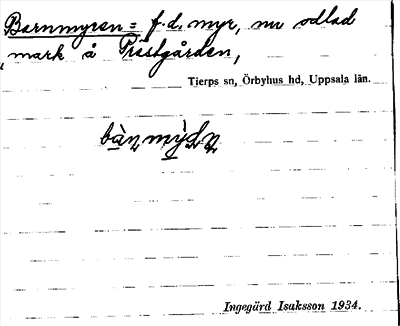 Barnmyren = f.d. myr, nu odlad
mark å Prästgården,
Tierps sn, Örbyhus hd, Uppsala län.
Ingegärd Isaksson 1934.